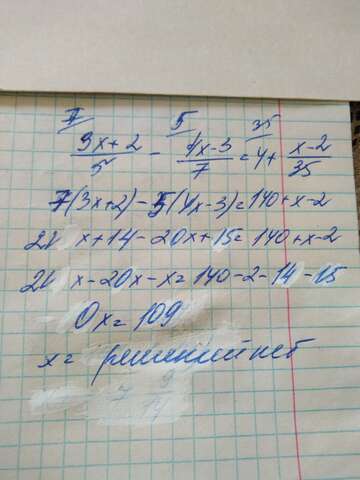 7 5 35
3x+2/5 - 4x-3/7 = 4 + x-2/35
7(3x+2)-5(4x-3)=140+x-2
21x+14-20x+15=140+x-2
21x-20x-x=140-2-14-15
0x=109
x= решений нет